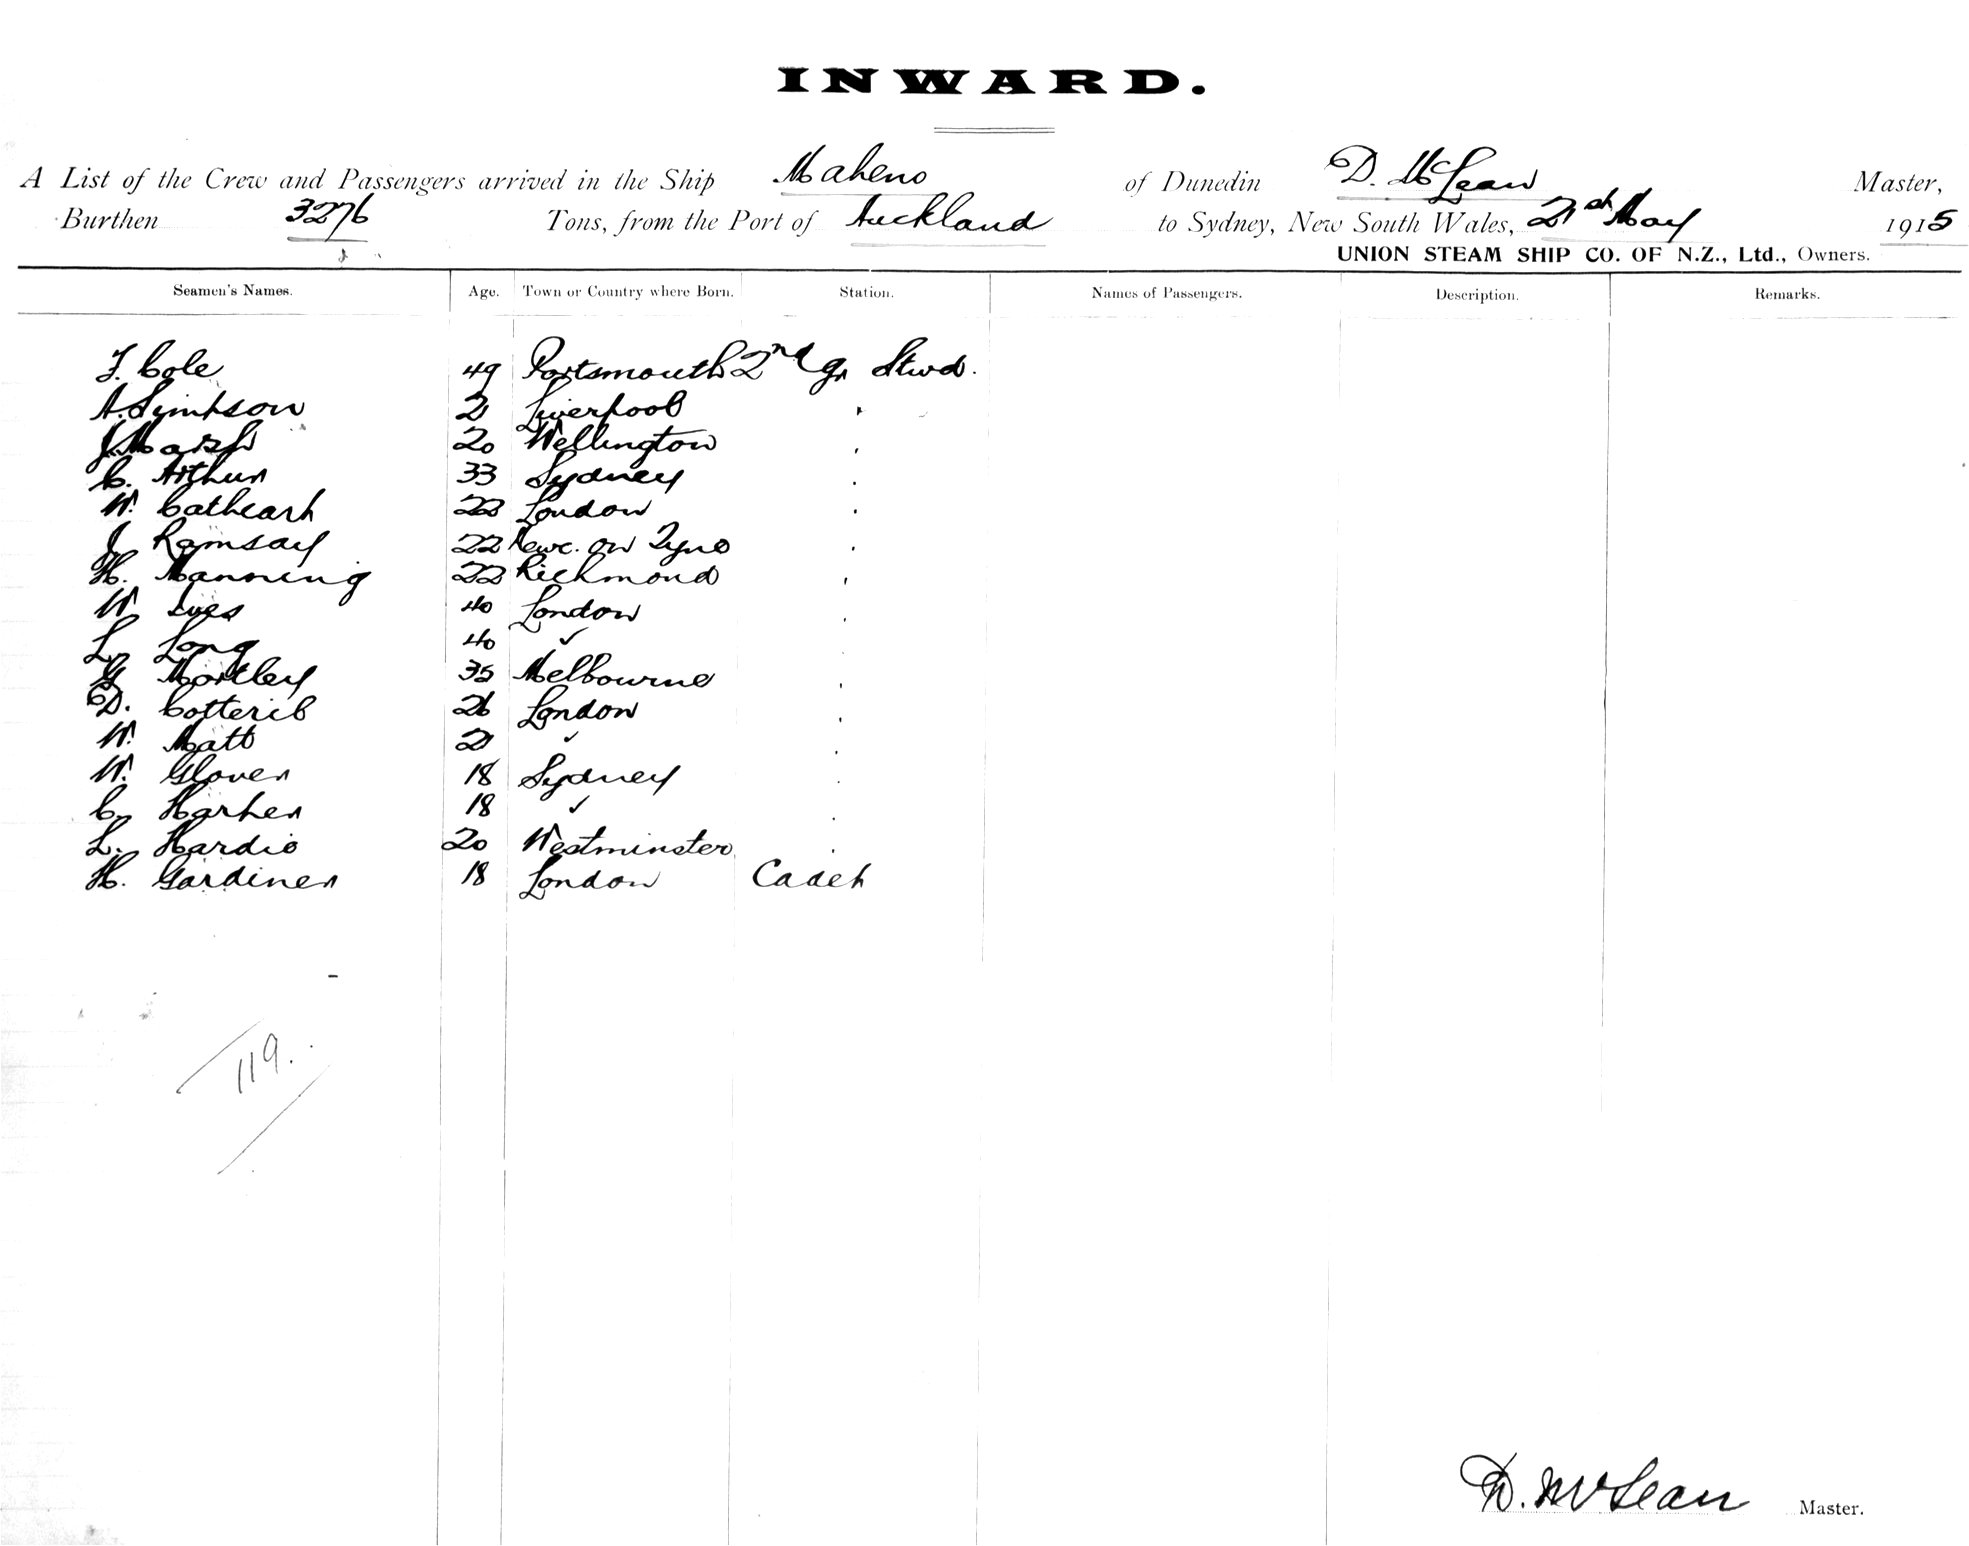 INWARD.
A List of the Crew and Passengers arrived in the Ship Maheno of Dunedin D. McLean Master,
Burthen 3276 Tons, from the Port of Auckland to Sydney, New South Wales, 21st May 1915
UNION STEAM SHIP CO. OF N.Z., Ltd., Owners.
Seamen's Names. Age. Town or Country where Born. Station. Names of Passengers. Description. Remarks.
F. Cole 49 Portsmouth 2nd gr Stwd.
A. Simpson 21 Liverpool "
J. Marsh 20 Wellington "
C. Arthur 33 Sydney "
W. Cathcart 22 London "
J. Ramsay 22 Newc. on Tyne "
H. Manning 22 Richmond "
W. Ives 40 London "
L. Long 40 " "
G. Mortley 35 Melbourne "
D. Cotterib 26 London "
W. Matt 21 " "
W. Glover 18 Sydney "
C. Harher 18 " "
L. Hardie 20 Westminster "
H. Gardiner 18 London Cadet
119.
D. McLean Master.